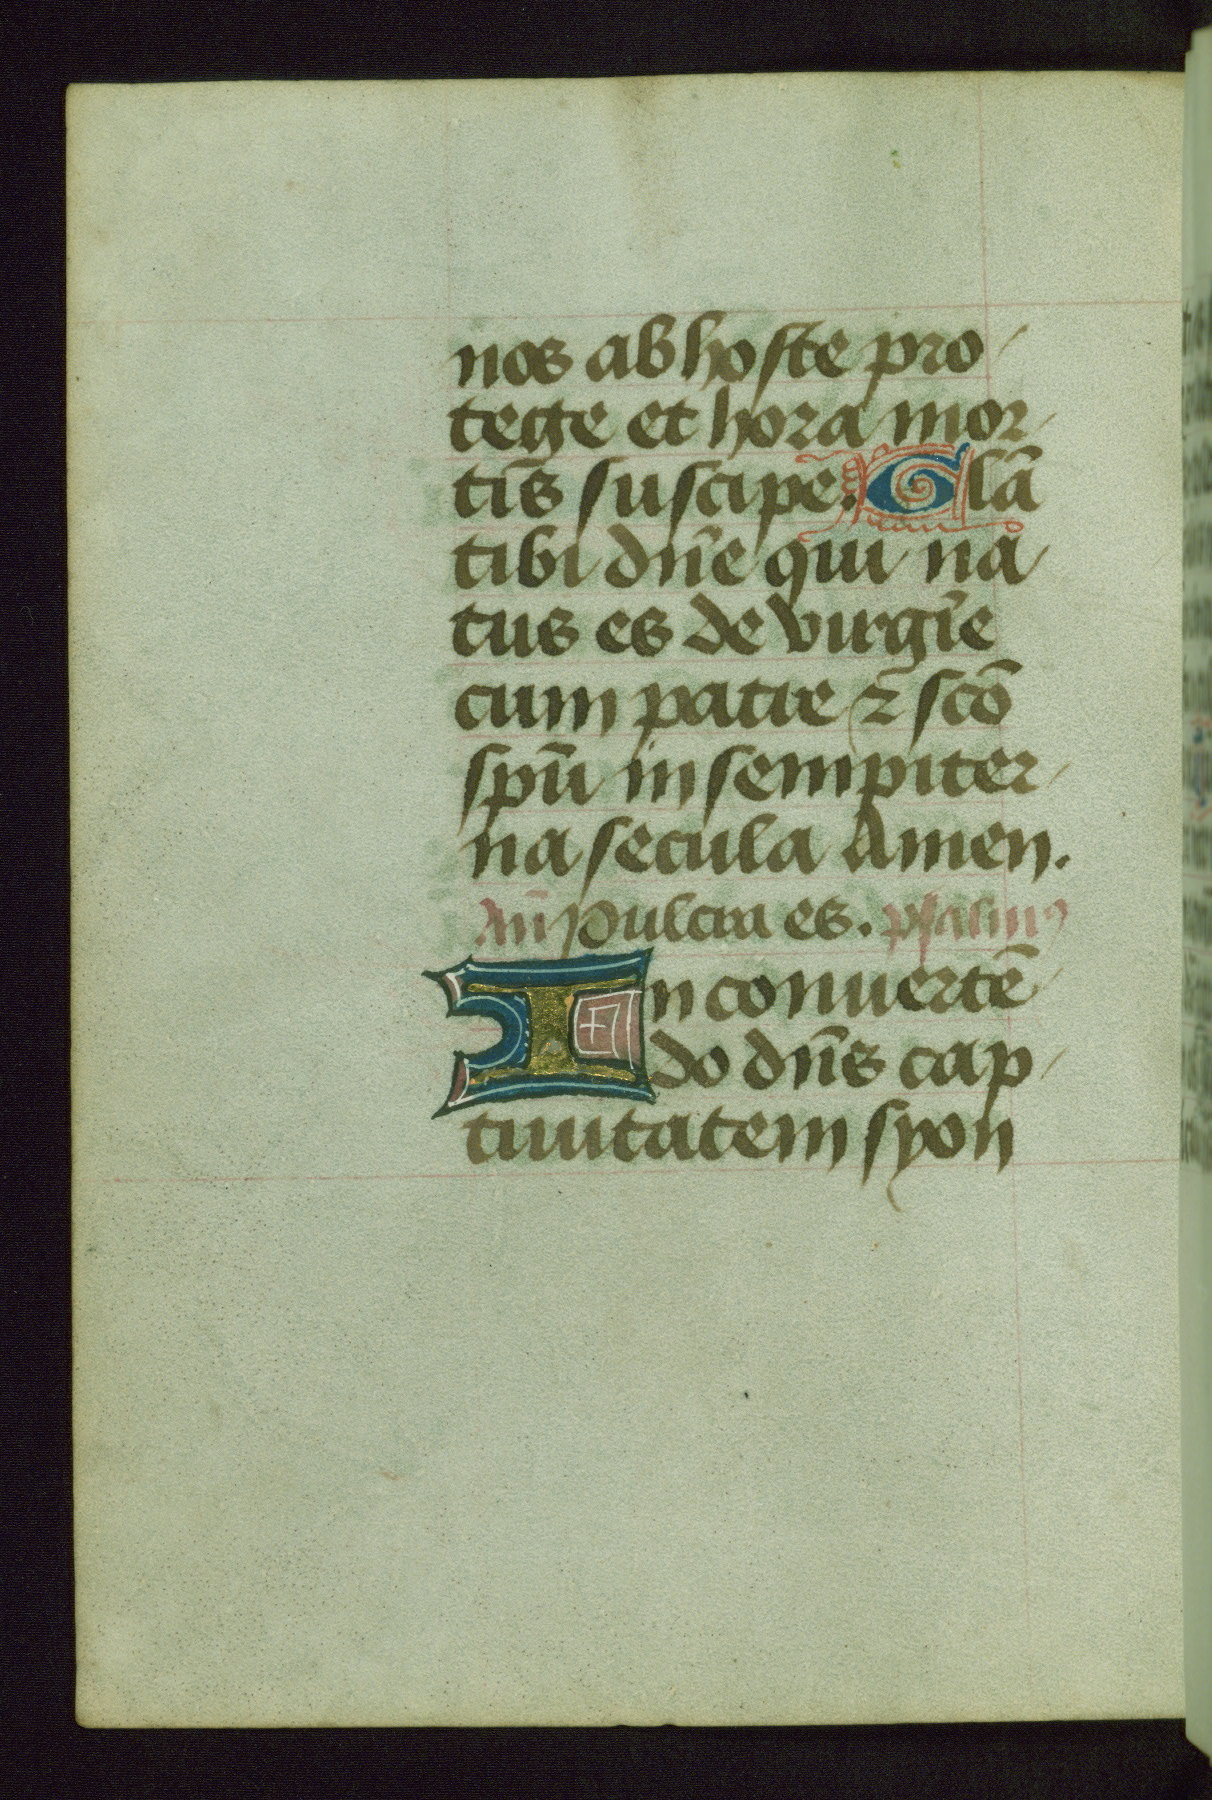 nos ab hoste pro
tege et hora mor
tis suscipe. Glã
tibi dñe qui na
tus es de virgĩe
cum patre ⁊̃ scõ
spũ in sempiter
na secula Amen.
Añ Pulcra es. psalmꝰ
In conuertẽ
do dñs cap
tiuitatem syon